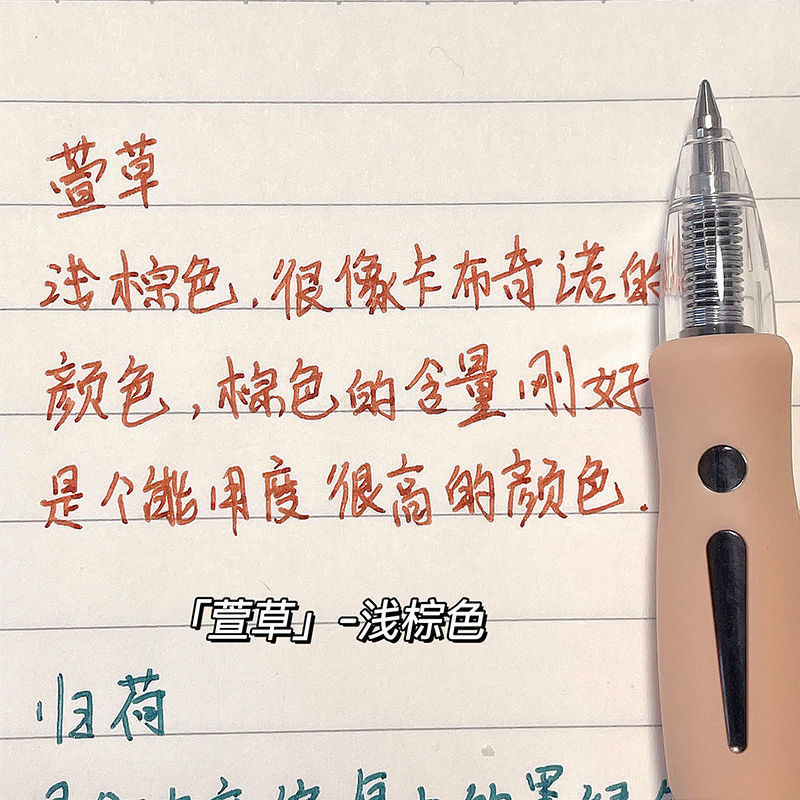 萱草
浅棕色,很像卡布奇诺的
颜色,棕色的含量刚好
是个能用度很高的颜色.
「萱草」-浅棕色
归荷